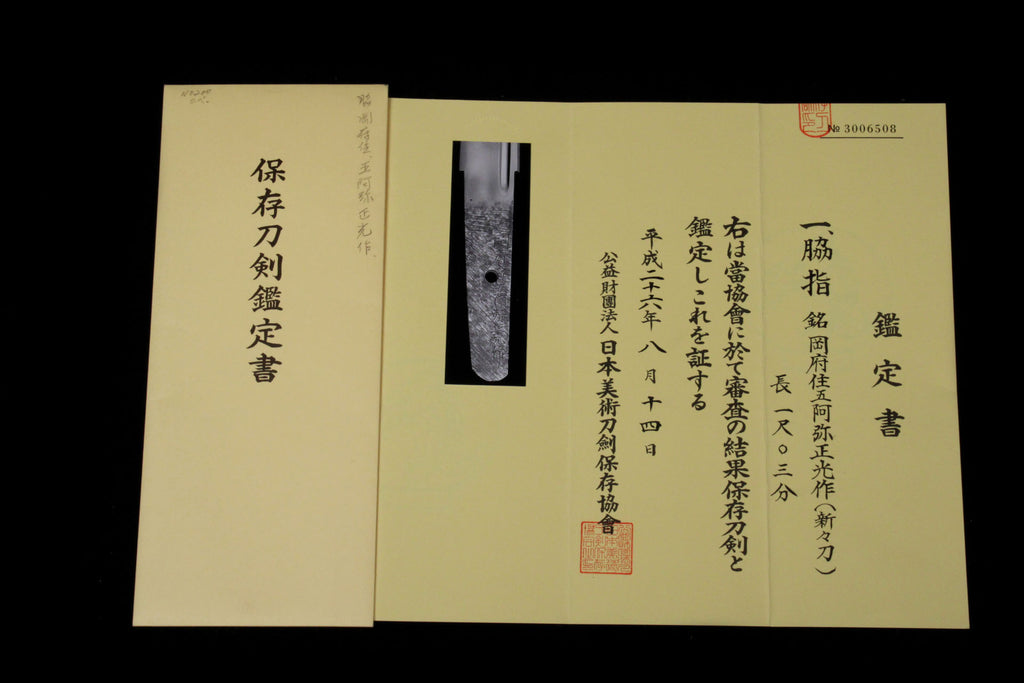 保存刀剣鑑定書
脇 岡府住 五阿弥正光作
№ 3006508
鑑定書
一、脇指 銘 岡府住五阿弥正光作(新々刀)
長 一尺〇三分
右は當協會に於て審査の結果保存刀剣と
鑑定しこれを証する
平成二十六年 八月 十四日
公益財團法人 日本美術刀劍保存協會